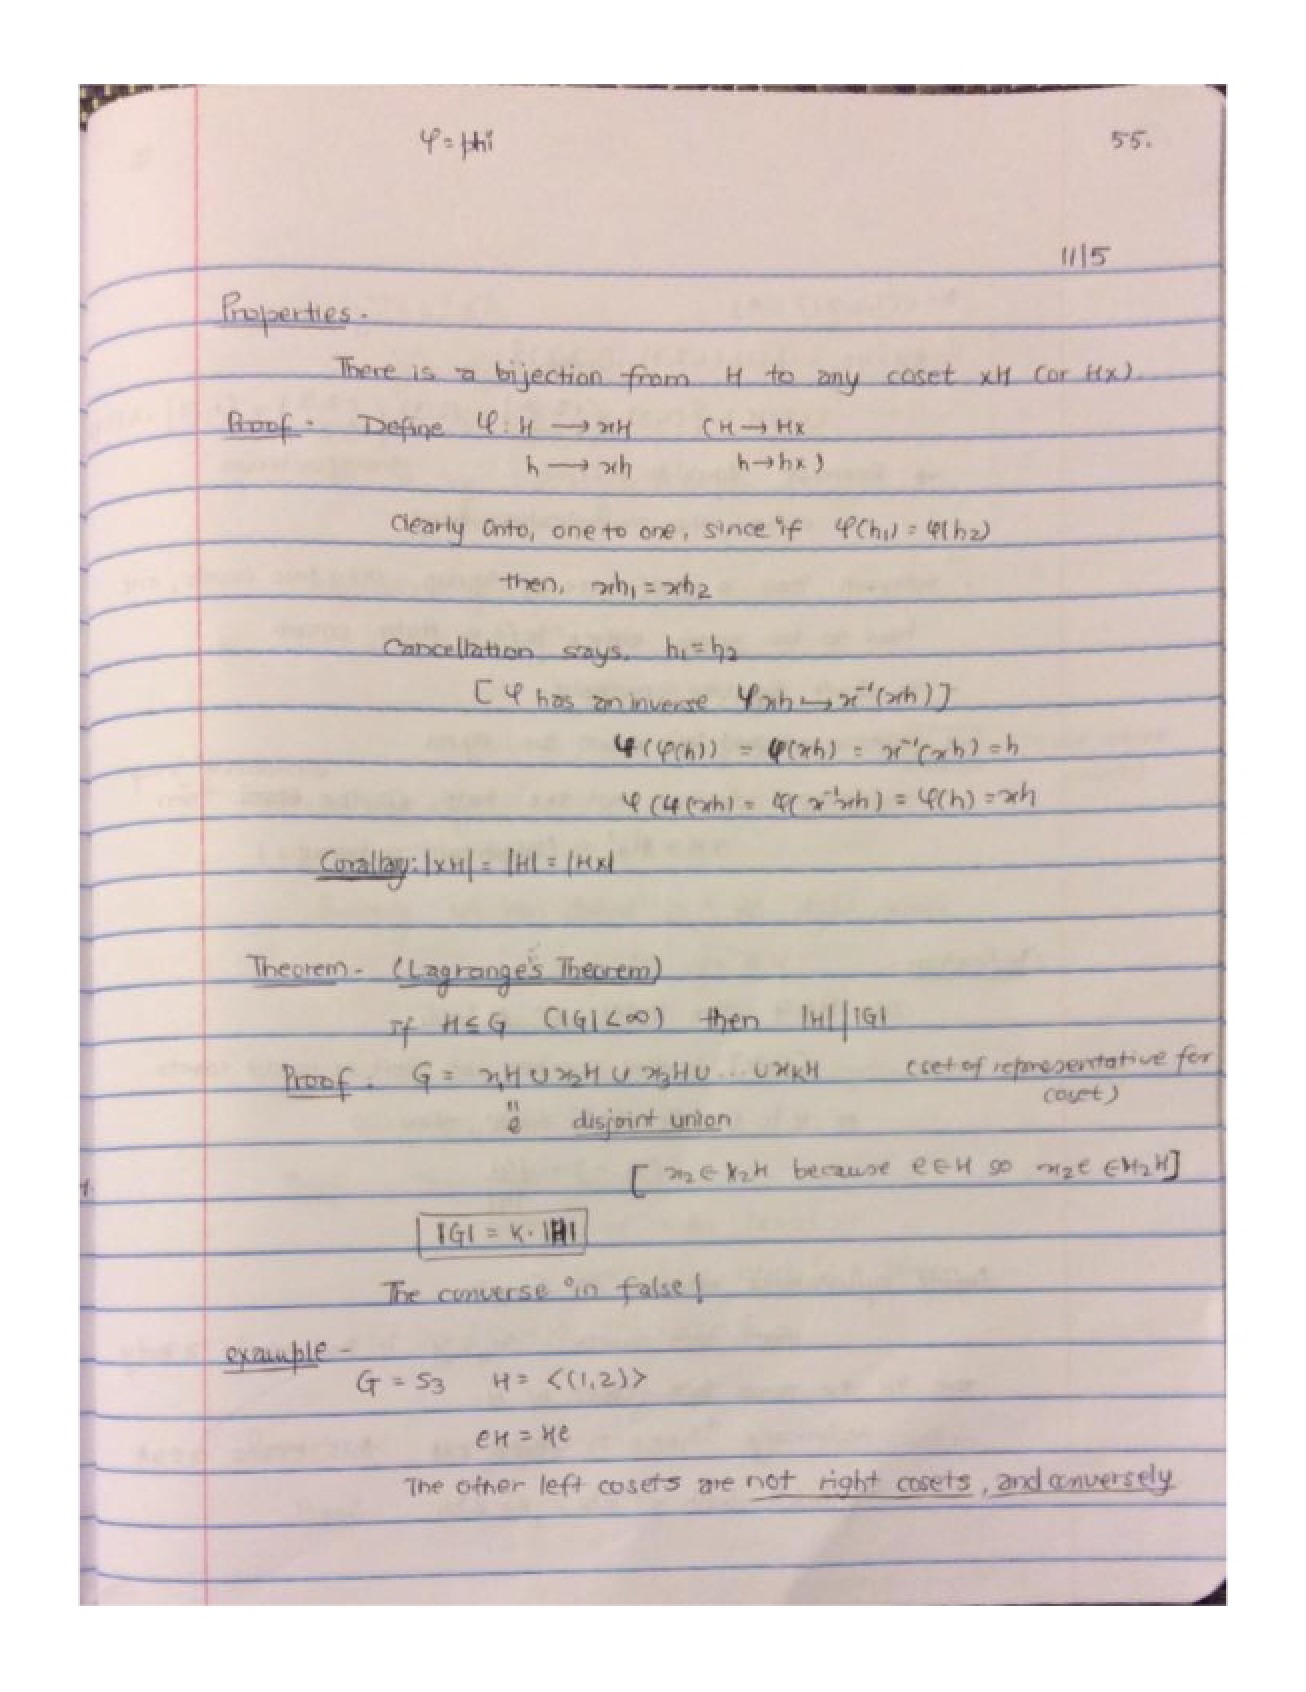 φ = phi
55.
11/5
Properties.
There is a bijection from H to any coset xH (or Hx).
Proof - Define φ : H → xH (H → Hx
h → xh h → hx)
Clearly onto, one to one, since if φ(h₁) = φ(h₂)
then, xh₁ = xh₂
Cancellation says, h₁ = h₂
[ φ has an inverse ψ xh ↦ x⁻¹(xh) ]
ψ(φ(h)) = ψ(xh) = x⁻¹(xh) = h
φ(ψ(xh) = φ(x⁻¹xh) = φ(h) = xh
Corallay: |xH| = |H| = |Hx|
Theorem - (Lagrange's Theorem)
If H ≤ G (|G| < ∞) then |H| | |G|
Proof. G = x₁H ∪ x₂H ∪ x₃H ∪ ... ∪ xₖH (set of representative for
coset)
"
e disjoint union
[ x₂ ∈ x₂H because e ∈ H so x₂e ∈ x₂H ]
|G| = k · |H|
The converse in false!
example -
G = S₃ H = <(1,2)>
eH = He
The other left cosets are not right cosets, and conversely